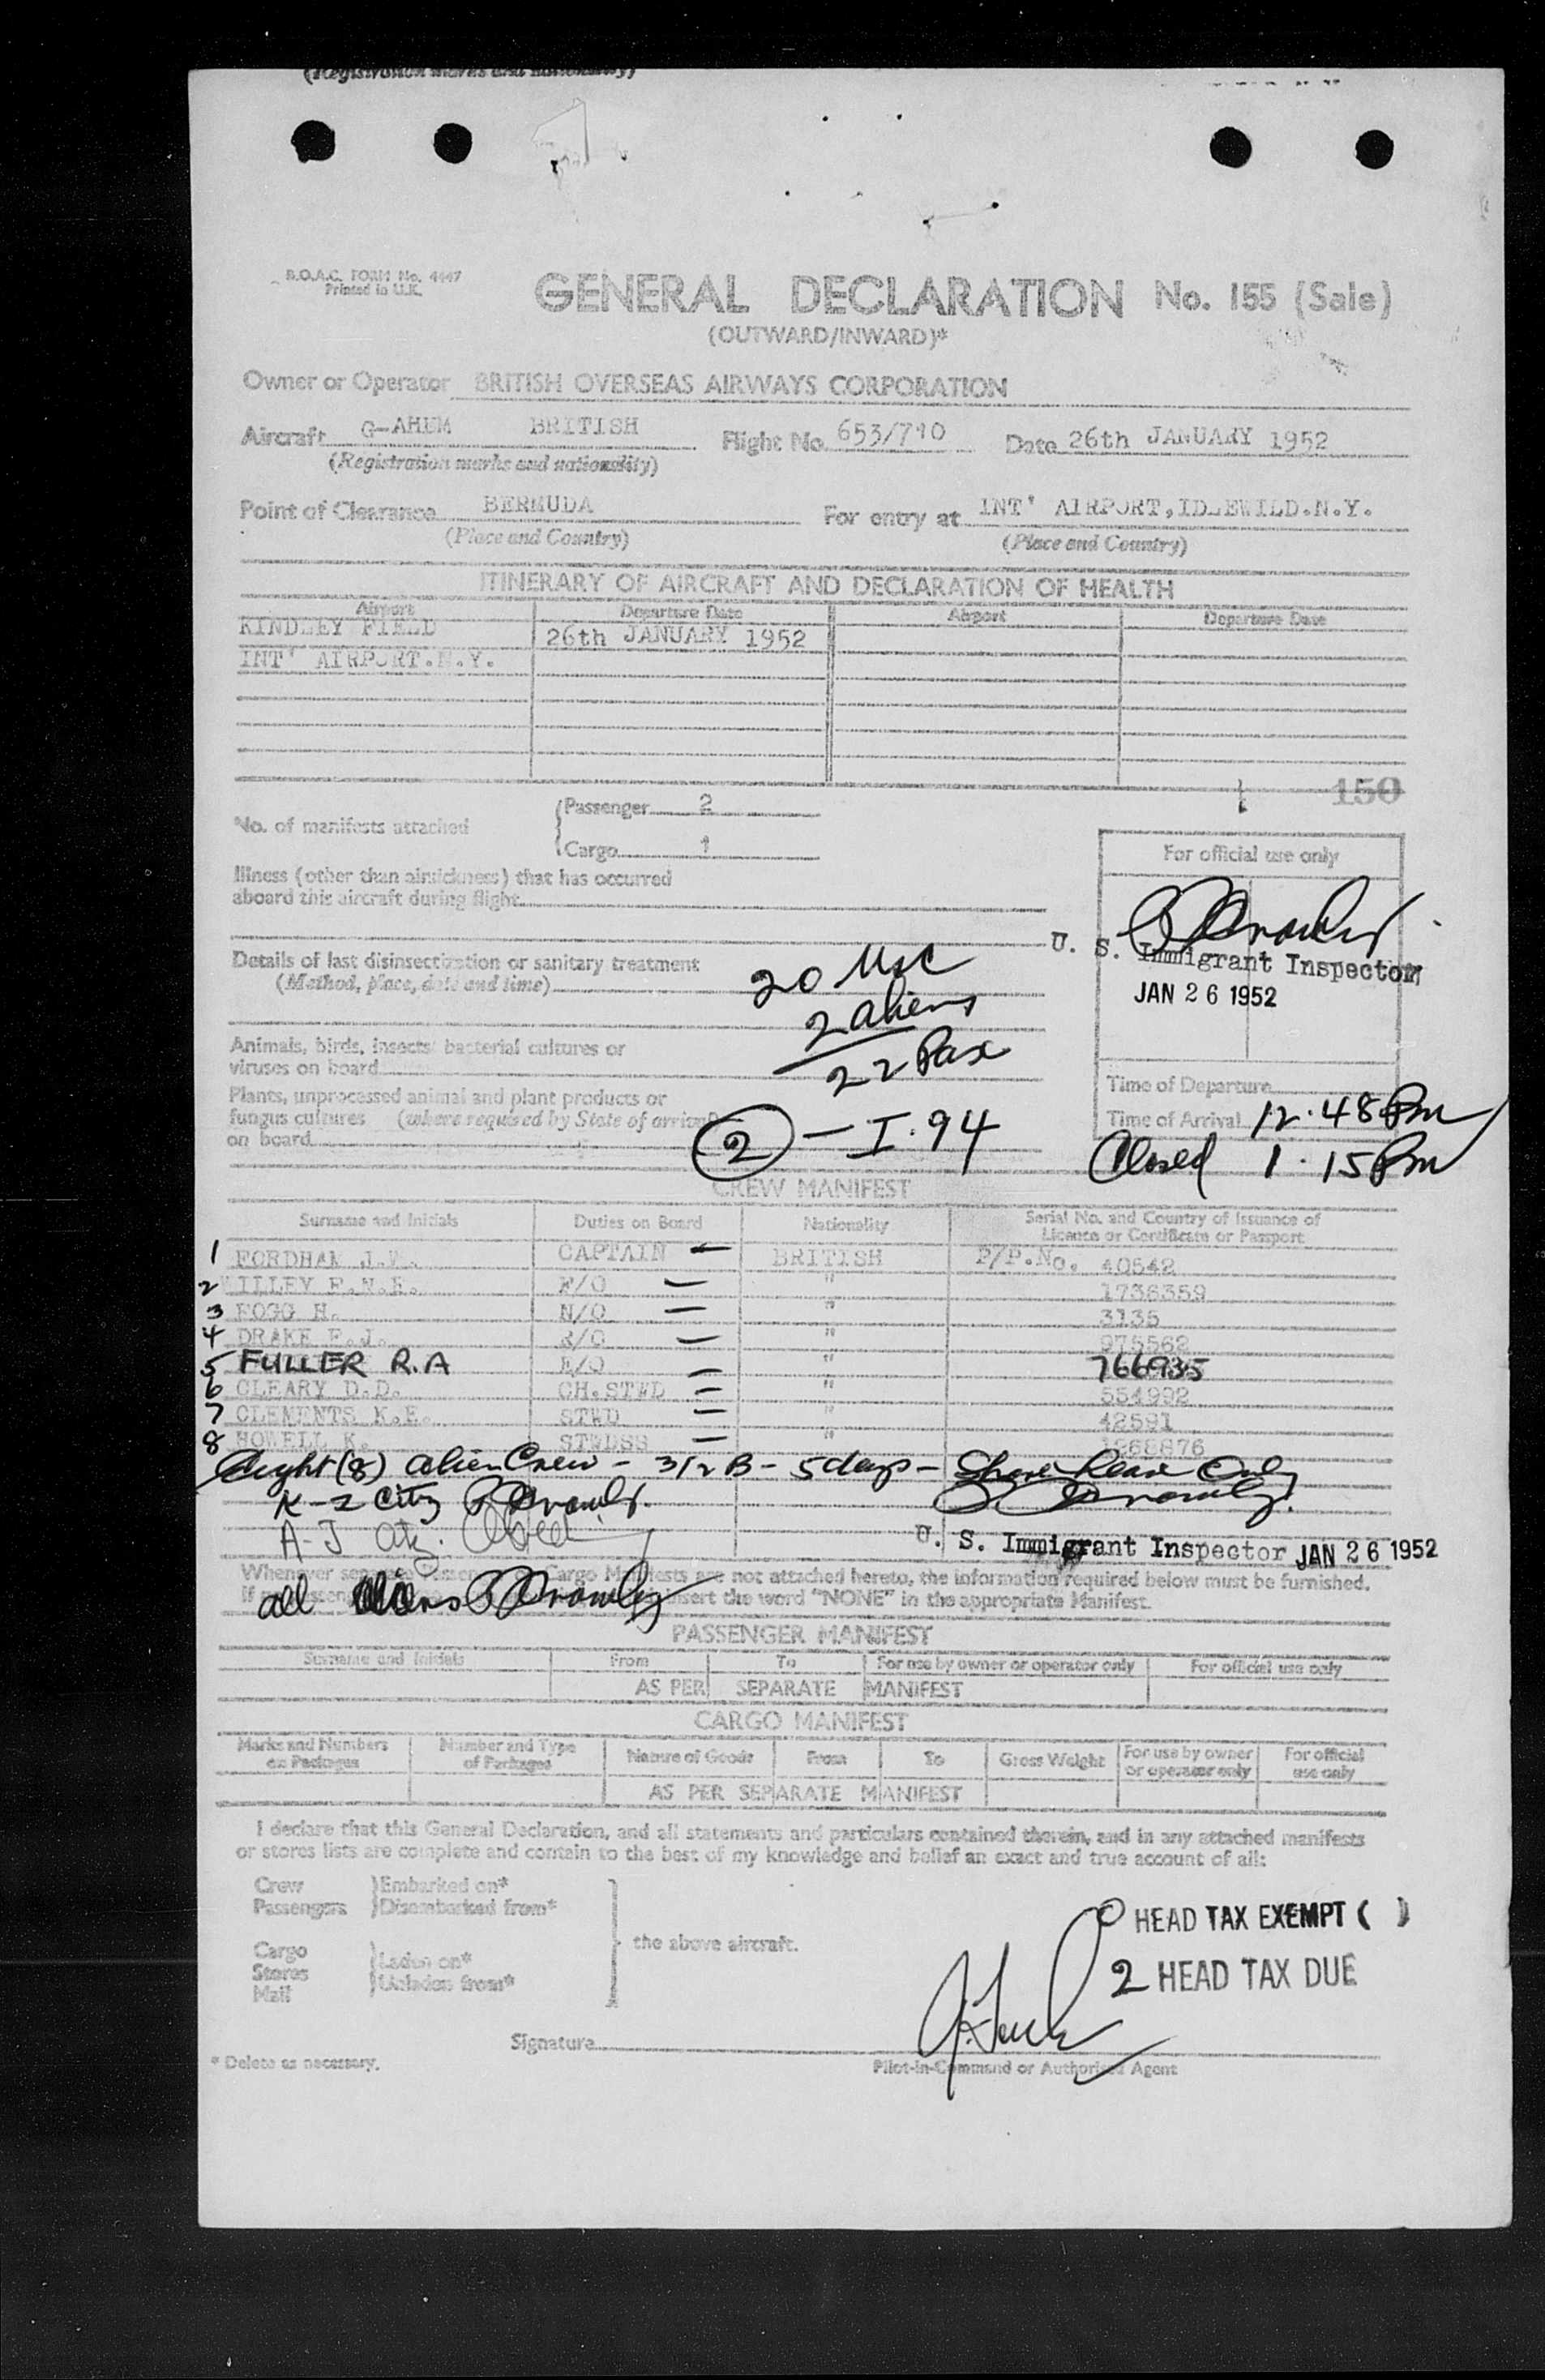 (Registration marks and nationality)
B.O.A.C. FORM No. 4447
Printed in U.K.
GENERAL DECLARATION No. 155 (Sale)
(OUTWARD/INWARD)*
Owner or Operator BRITISH OVERSEAS AIRWAYS CORPORATION
Aircraft G-AHEM BRITISH Flight No. 653/710 Date 26th JANUARY 1952
(Registration marks and nationality)
Point of Clearance BERMUDA For entry at INT' AIRPORT, IDLEWILD.N.Y.
(Place and Country) (Place and Country)
ITINERARY OF AIRCRAFT AND DECLARATION OF HEALTH
Airport Departure Date Airport Departure Date
KINDLEY FIELD 26th JANUARY 1952
INT' AIRPORT.N.Y.
150
No. of manifests attached
Passenger 2
Cargo 1
For official use only
Illness (other than airsickness) that has occurred
aboard this aircraft during flight
U. S. Immigrant Inspector
JAN 26 1952
Details of last disinsectization or sanitary treatment
(Method, place, date and time)
20 USC
2 aliens
22 Pax
Animals, birds, insects bacterial cultures or
viruses on board
Plants, unprocessed animal and plant products or
fungus cultures (where required by State of arrival)
on board
2 - I.94
Time of Departure
Time of Arrival 12.48 Pm
Closed 1.15 Pm
CREW MANIFEST
Surname and Initials Duties on Board Nationality Serial No. and Country of Issuance of
Licence or Certificate or Passport
1 FORDHAM J.W. CAPTAIN - BRITISH P/P.No. 40542
2 F/O - " 1736359
3 FOGG H. N/O - " 3135
4 DRAKE F.J. R/O - " 975562
5 FULLER R.A E/O - " 766935
6 CLEARY D.D. CH.STWD - " 554992
7 CLEMENTS K.E. STWD - " 42591
8 HOWELL K. STWDSS - " 1268876
Eight (8) alien Crew - 3/2 B - 5 days - Shore Leave Only
K-2 City
A-J
U. S. Immigrant Inspector JAN 26 1952
Whenever separate Passenger Cargo Manifests are not attached hereto, the information required below must be furnished.
If passenger insert the word "NONE" in the appropriate Manifest.
all aliens
PASSENGER MANIFEST
Surname and Initials From To For use by owner or operator only For official use only
AS PER SEPARATE MANIFEST
CARGO MANIFEST
Marks and Numbers on Packages Number and Type of Packages Nature of Goods From To Gross Weight For use by owner or operator only For official use only
AS PER SEPARATE MANIFEST
I declare that this General Declaration, and all statements and particulars contained therein, and in any attached manifests
or stores lists are complete and contain to the best of my knowledge and belief an exact and true account of all:
Crew
Passengers
Embarked on*
Disembarked from*
Cargo
Stores
Mail
Laden on*
Unladen from*
the above aircraft.
0 HEAD TAX EXEMPT ( )
2 HEAD TAX DUE
Signature
* Delete as necessary.
Pilot-in-Command or Authorised Agent